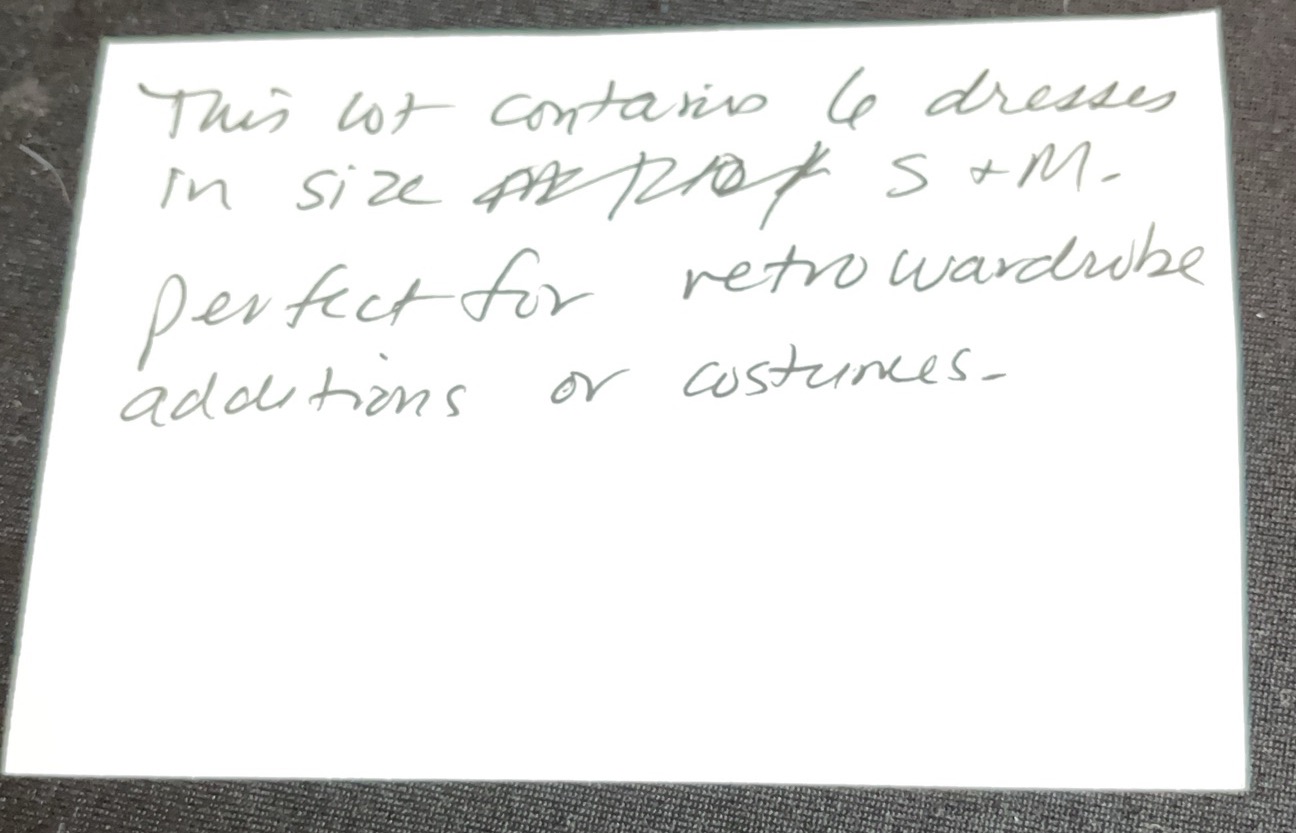 This lot contains 6 dresses
in size S + M.
perfect for retro wardrobe
additions or costumes.